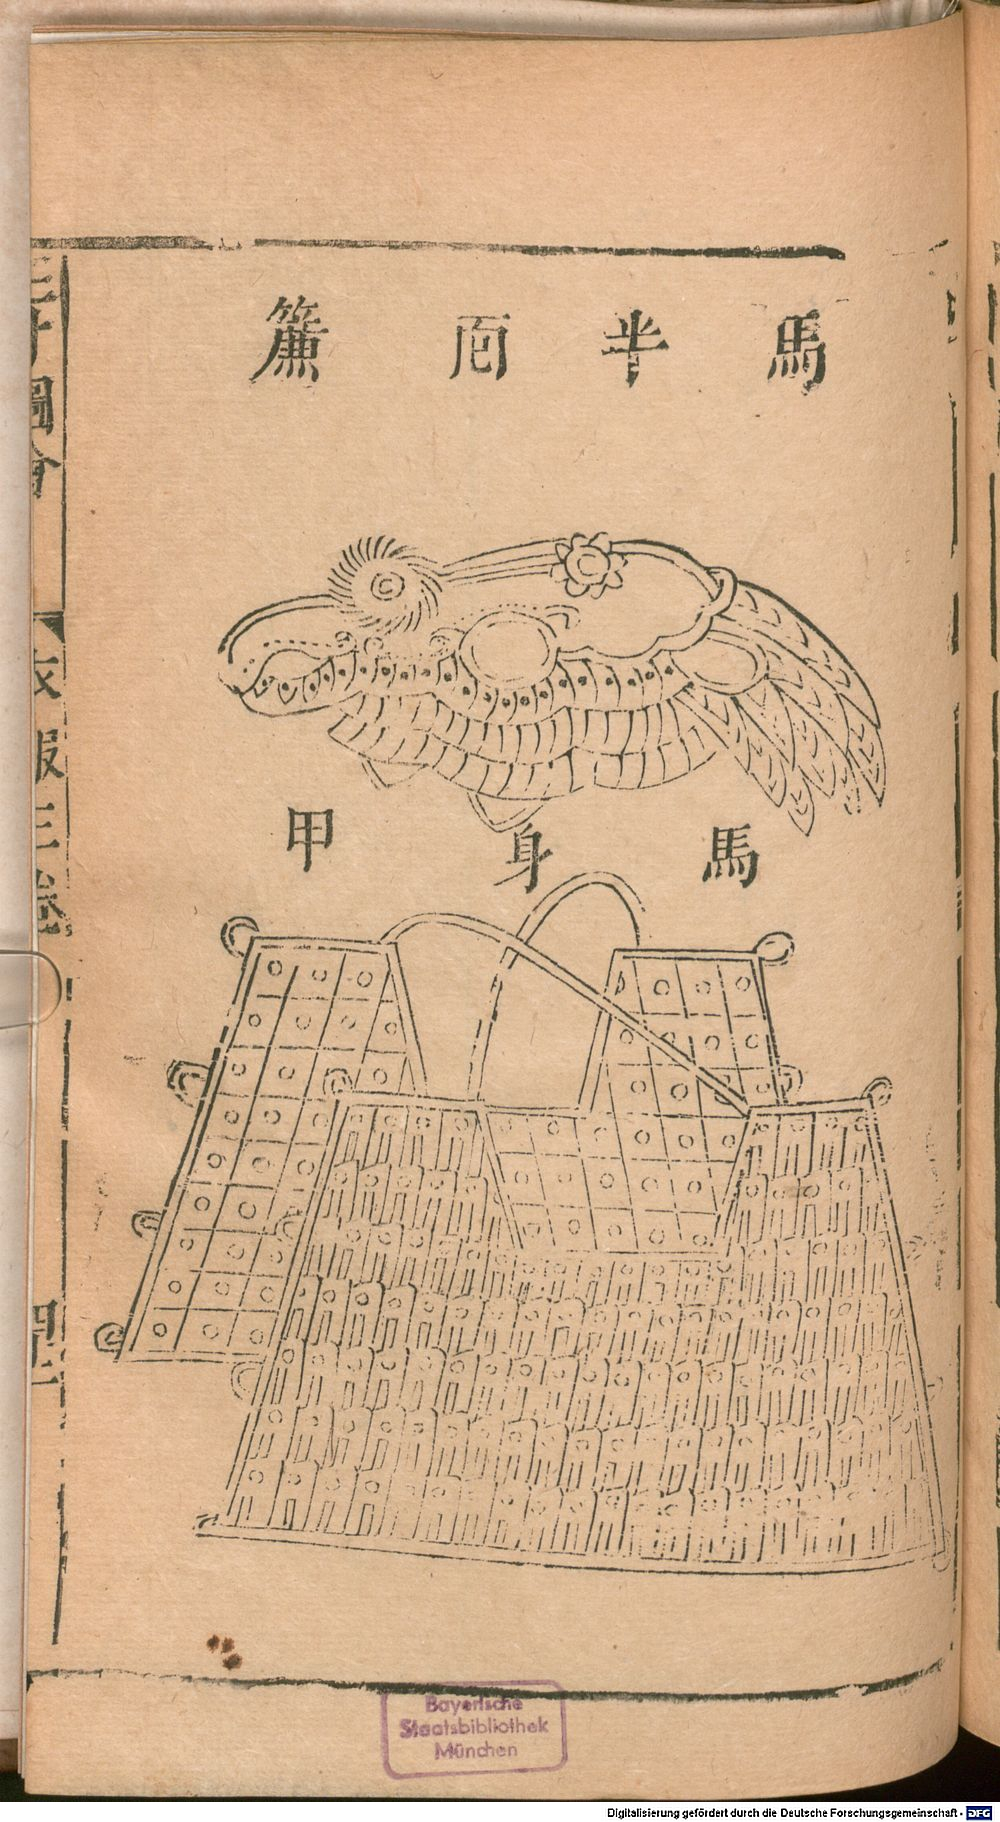 馬半面簾
馬身甲
三才圖會
衣服三卷
Bayerische
Staatsbibliothek
München
Digitalisierung gefördert durch die Deutsche Forschungsgemeinschaft - DFG